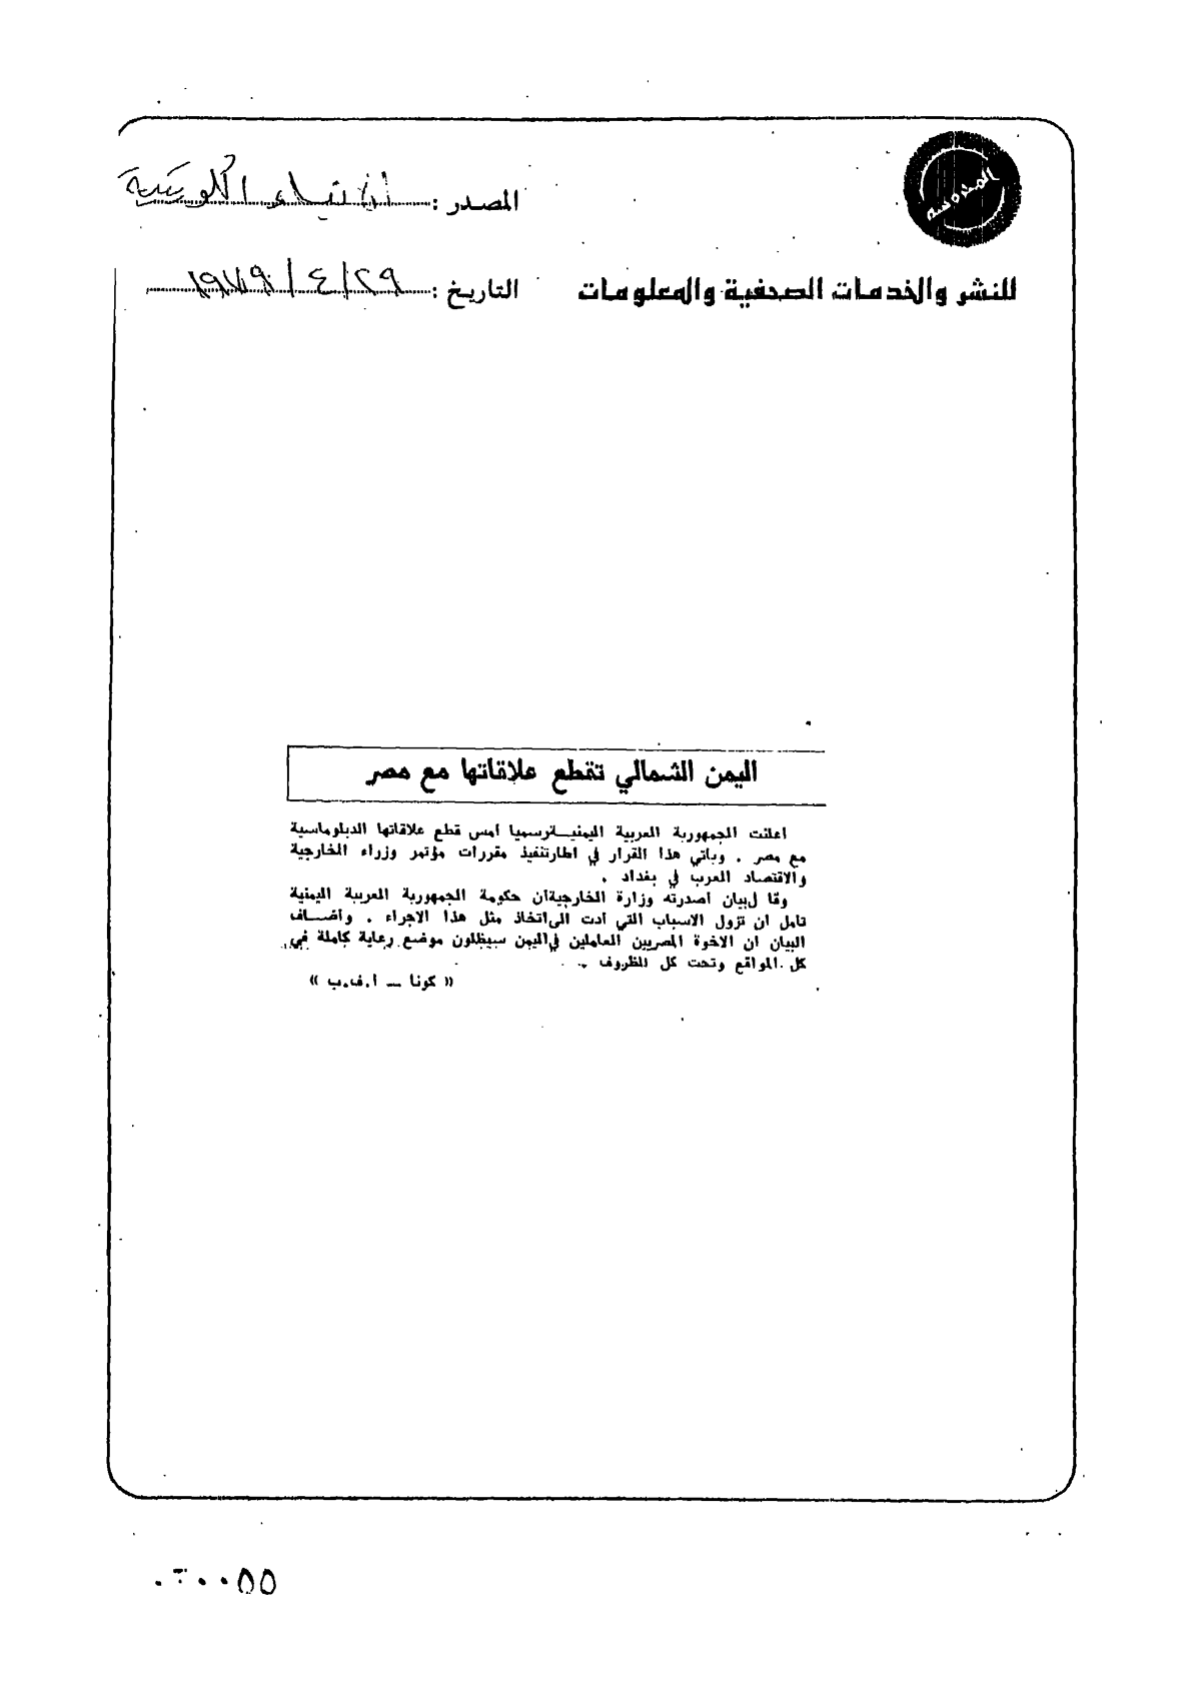 المصدر : الأنباء الكويتية
للنشر والخدمات الصحفية والمعلومات
التاريخ : ٢٩/٤/١٩٧٩
اليمن الشمالي تقطع علاقاتها مع مصر
اعلنت الجمهورية العربية اليمنيـةرسميا امس قطع علاقاتها الدبلوماسية
مع مصر . وياتي هذا القرار في اطارتنفيذ مقررات مؤتمر وزراء الخارجية
والاقتصاد العرب في بغداد .
وقا لبيان اصدرته وزارة الخارجيةان حكومة الجمهورية العربية اليمنية
تامل ان تزول الاسباب التي ادت الىاتخاذ مثل هذا الاجراء . واضـاف
البيان ان الاخوة المصريين العاملين فياليمن سيظلون موضع رعاية كاملة في
كل المواقع وتحت كل الظروف .
« كونا ــ ا.ف.ب »